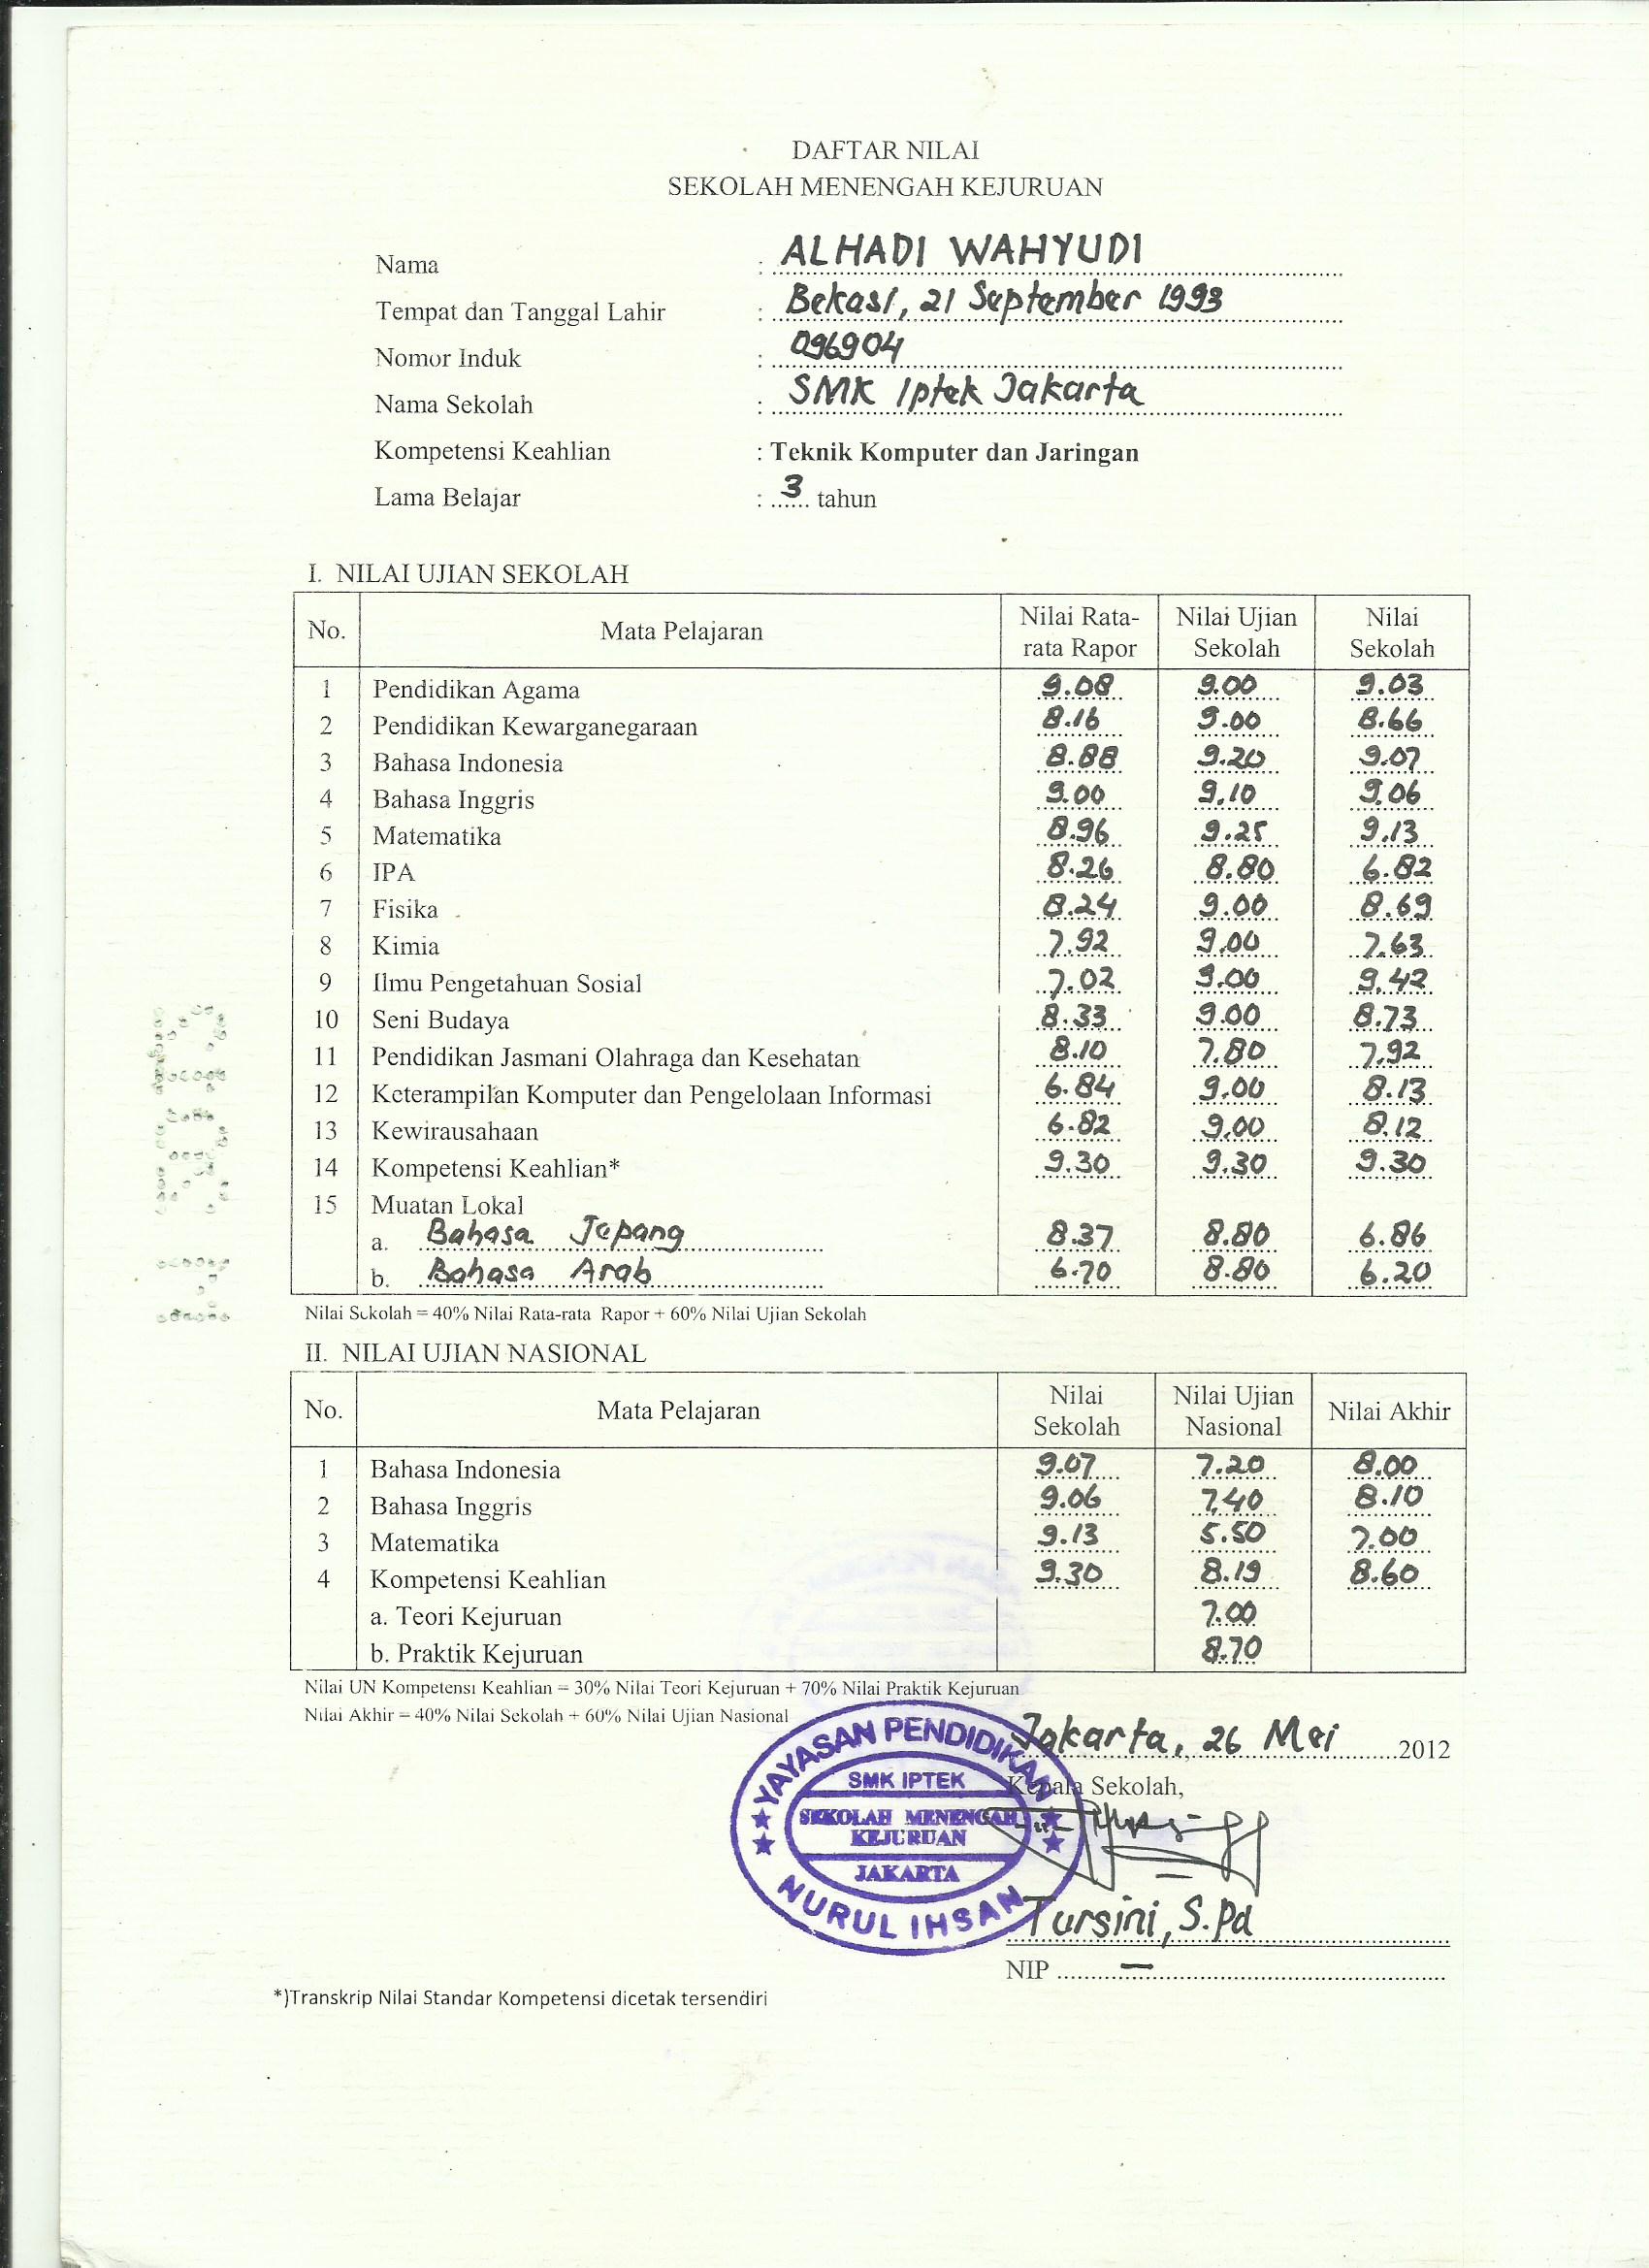 DAFTAR NILAI
SEKOLAH MENENGAH KEJURUAN
Nama : ALHADI WAHYUDI
Tempat dan Tanggal Lahir : Bekasi, 21 September 1993
Nomor Induk : 096904
Nama Sekolah : SMK Iptek Jakarta
Kompetensi Keahlian : Teknik Komputer dan Jaringan
Lama Belajar : 3 tahun
I. NILAI UJIAN SEKOLAH
No. Mata Pelajaran Nilai Rata-rata Rapor Nilai Ujian Sekolah Nilai Sekolah
1 Pendidikan Agama 9.08 9.00 9.03
2 Pendidikan Kewarganegaraan 8.16 9.00 8.66
3 Bahasa Indonesia 8.88 9.20 9.07
4 Bahasa Inggris 9.00 9.10 9.06
5 Matematika 8.96 9.25 9.13
6 IPA 8.26 8.80 6.82
7 Fisika 8.24 9.00 8.69
8 Kimia 7.92 9.00 7.63
9 Ilmu Pengetahuan Sosial 7.02 9.00 9.42
10 Seni Budaya 8.33 9.00 8.73
11 Pendidikan Jasmani Olahraga dan Kesehatan 8.10 7.80 7.92
12 Keterampilan Komputer dan Pengelolaan Informasi 6.84 9.00 8.13
13 Kewirausahaan 6.82 9.00 8.12
14 Kompetensi Keahlian* 9.30 9.30 9.30
15 Muatan Lokal
a. Bahasa Jepang 8.37 8.80 6.86
b. Bahasa Arab 6.70 8.80 6.20
Nilai Sekolah = 40% Nilai Rata-rata Rapor + 60% Nilai Ujian Sekolah
II. NILAI UJIAN NASIONAL
No. Mata Pelajaran Nilai Sekolah Nilai Ujian Nasional Nilai Akhir
1 Bahasa Indonesia 9.07 7.20 8.00
2 Bahasa Inggris 9.06 7.40 8.10
3 Matematika 9.13 5.50 7.00
4 Kompetensi Keahlian 9.30 8.19 8.60
a. Teori Kejuruan 7.00
b. Praktik Kejuruan 8.70
Nilai UN Kompetensi Keahlian = 30% Nilai Teori Kejuruan + 70% Nilai Praktik Kejuruan
Nilai Akhir = 40% Nilai Sekolah + 60% Nilai Ujian Nasional
Jakarta, 26 Mei 2012
Kepala Sekolah,
YAYASAN PENDIDIKAN
SMK IPTEK
SEKOLAH MENENGAH
KEJURUAN
JAKARTA
NURUL IHSAN
Tursini, S.Pd
NIP –
*)Transkrip Nilai Standar Kompetensi dicetak tersendiri